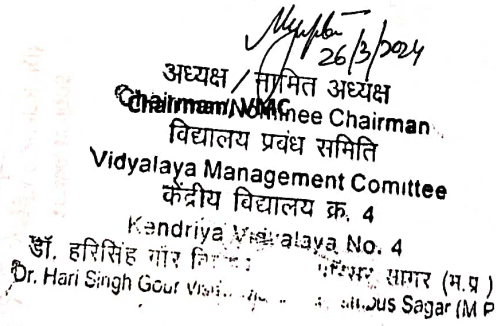 26/3/2024
अध्यक्ष / नामित अध्यक्ष
Chairman/Nominee Chairman
Chairman, VMC
विद्यालय प्रबंध समिति
Vidyalaya Management Comittee
केंद्रीय विद्यालय क्र. 4
Kendriya Vidyalaya No. 4
डॉ. हरिसिंह गौर परिसर सागर (म.प्र.)
Dr. Hari Singh Gour Sagar (M P